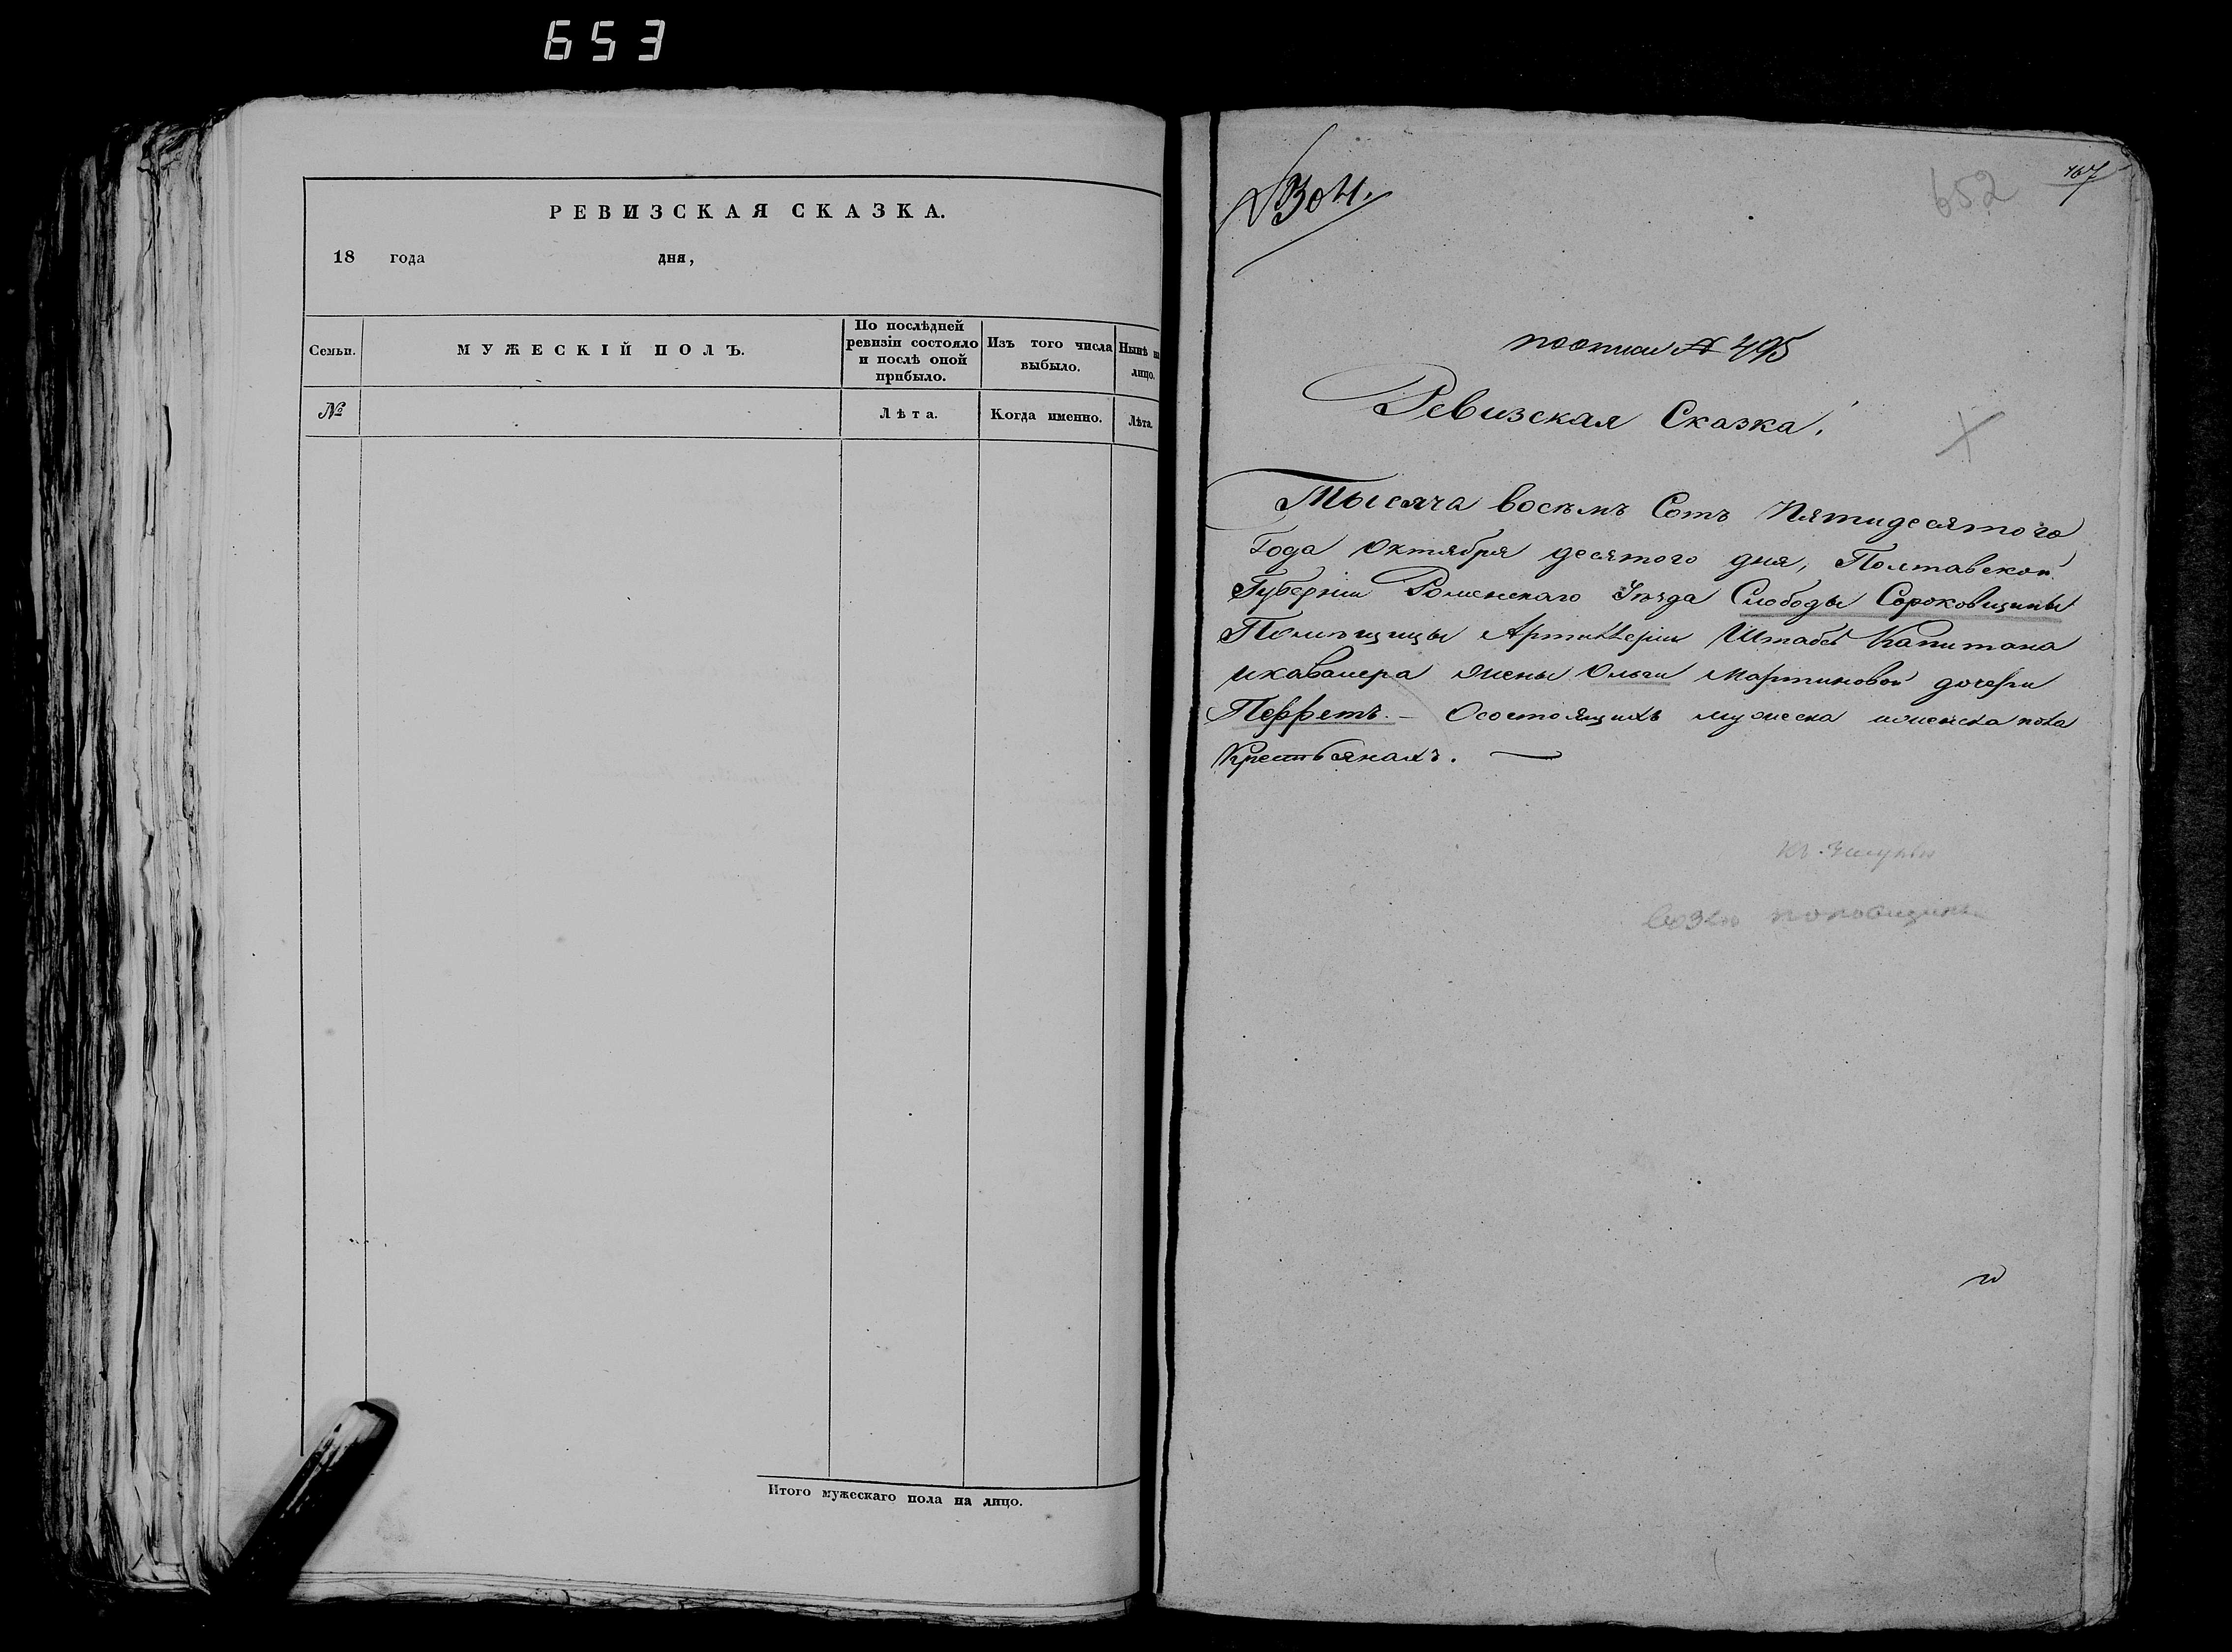 653
РЕВИЗСКАЯ СКАЗКА.
18 года дня,
Семьи.
МУЖЕСКІЙ ПОЛЪ.
По послѣдней ревизіи состояло и послѣ оной прибыло.
Изъ того числа выбыло.
Нынѣ на лицо.
№
Лѣта.
Когда именно.
Лѣта.
Итого мужескаго пола на лицо.
№304.
652
467
поописи № 495
Ревизская Сказка.
Тысяча восѣмъ Сотъ Пятидесятого
Года Октября десятого дня, Полтавской
Губерніи Роменскаго Уѣзда Слободы Сороковщины
Помѣщицы Артиллеріи Штабсъ Капитана
икавалера жены Ольги Мартиновой дочери
Перретъ. — Осостоящихъ мужеска иженска пола
Крестьянахъ. —